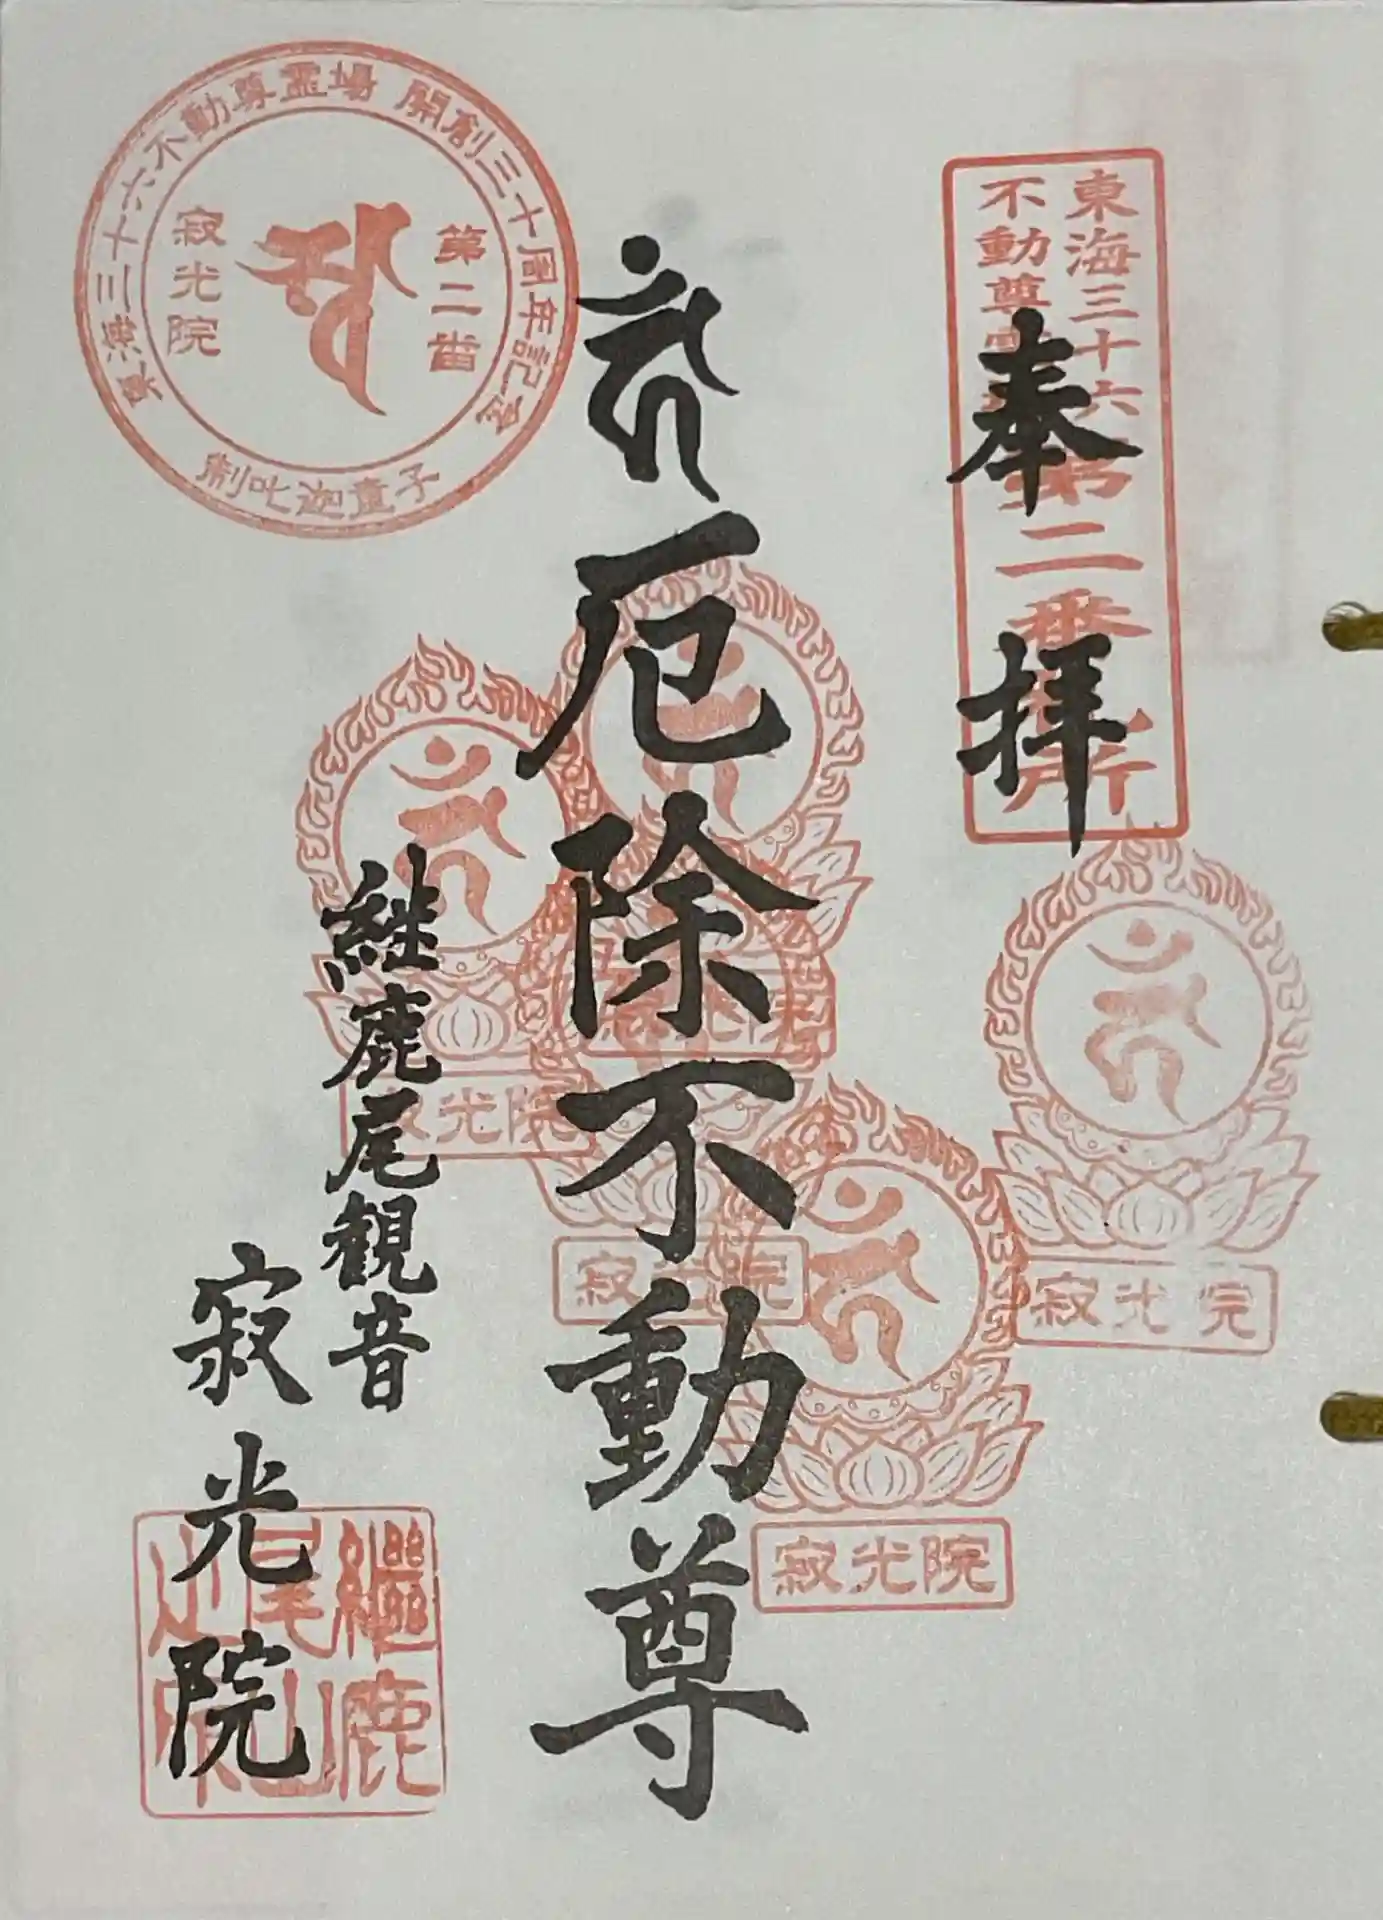 東海三十六
不動尊霊場
第二番札所
奉拝
厄除不動尊
継鹿尾観音
寂光院
東海三十六不動尊霊場 開創三十周年記念
第二番
寂光院
制吒迦童子
寂光院
寂光院
寂光院
寂光院
寂光院
繼鹿
尾山